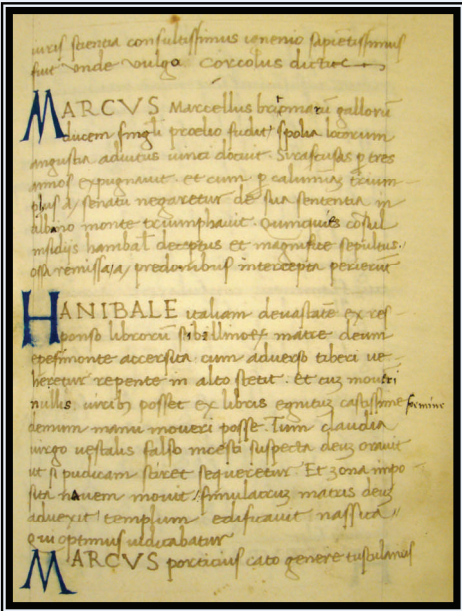 iuris scientia consultissimus ingenio sapietissimus
fuit vnde vulgo corcolus dictus
MARCVS Marcellus gallorũ
ducem singli proelio fudit spolia
angustia adiutus uinci docuit. Siracusas ꝑ tres
annos expugnauit. et cum ꝑ calumniaʒ trium
phus a senatu negaretur de sua sententia in
albano monte triumphauit. Quinquies cõsul
insidijs hanibal̃ deceptus et magnifice sepultus.
ossa remissa a predonibus intercepta perierũt
HANIBALE italiam deuastãte ex res-
ponso librorũ sibillinoꝝ mater deum
accersita cum aduerso tiberi ue-
heretur repente in alto stetit. Et cuʒ moueri
nullis uiribꝰ posset ex libris cognituʒ castissime femine
demum manu moueri posse. Tum claudia
uirgo uestalis falso incesti suspecta deaʒ orauit
ut si pudicam sciret sequeretur. Et zona impo-
sita nauem mouit. simulacruʒ matris deuʒ
aduexit templum edificauit nassica
qui optimus uidicabatur
MARCVS porticius cato genere tusculanus